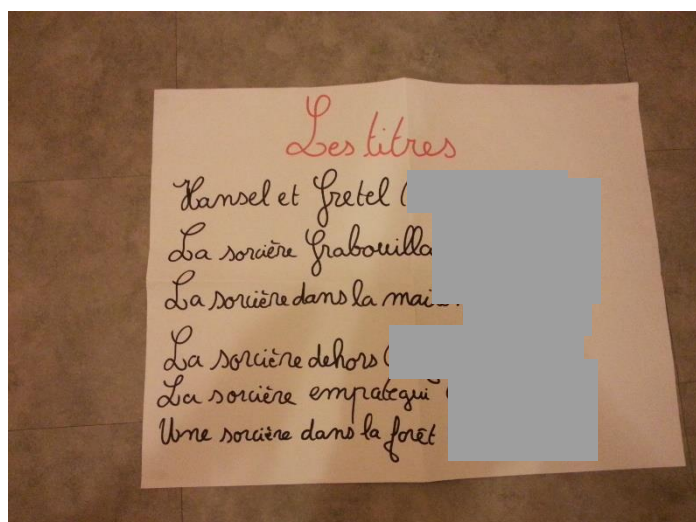 Les titres
Hansel et Gretel (
La sorcière Grabouilla
La sorcière dans la
La sorcière dehors (
La sorcière
Une sorcière dans la forêt